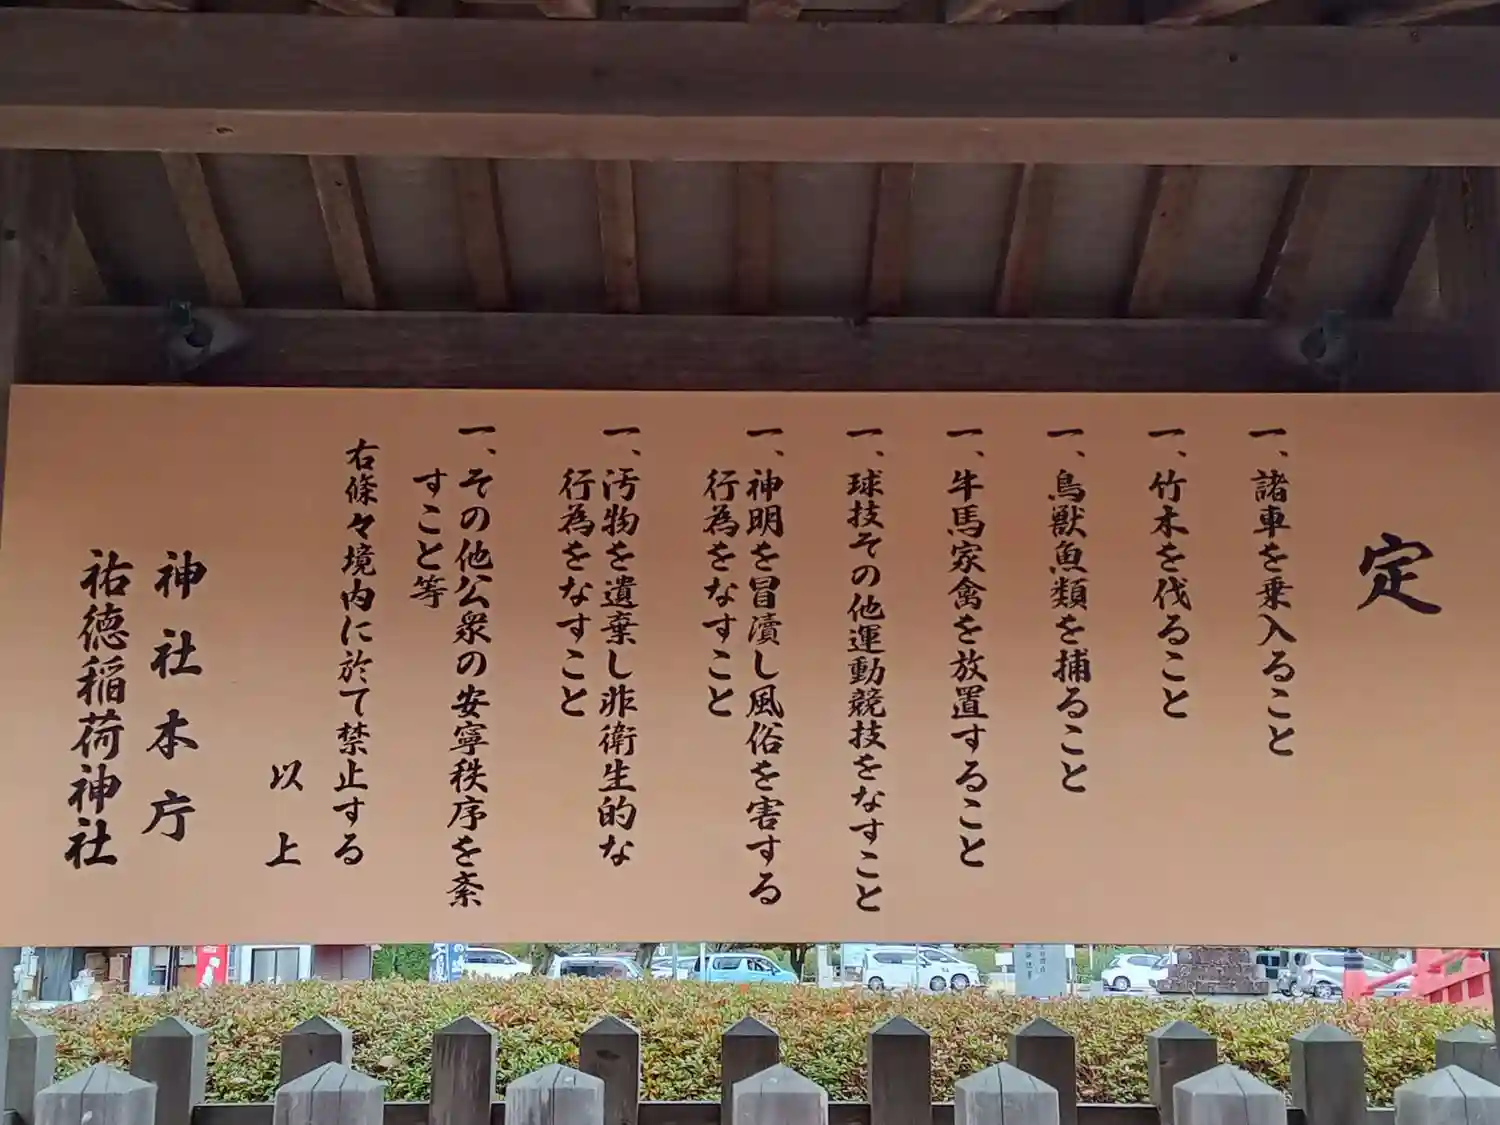 定
一、諸車を乗入ること
一、竹木を伐ること
一、鳥獣魚類を捕ること
一、牛馬家禽を放置すること
一、球技その他運動競技をなすこと
一、神明を冒瀆し風俗を害する
行為をなすこと
一、汚物を遺棄し非衛生的な
行為をなすこと
一、その他公衆の安寧秩序を紊
すこと等
右條々境内に於て禁止する
以上
神社本庁
祐徳稲荷神社